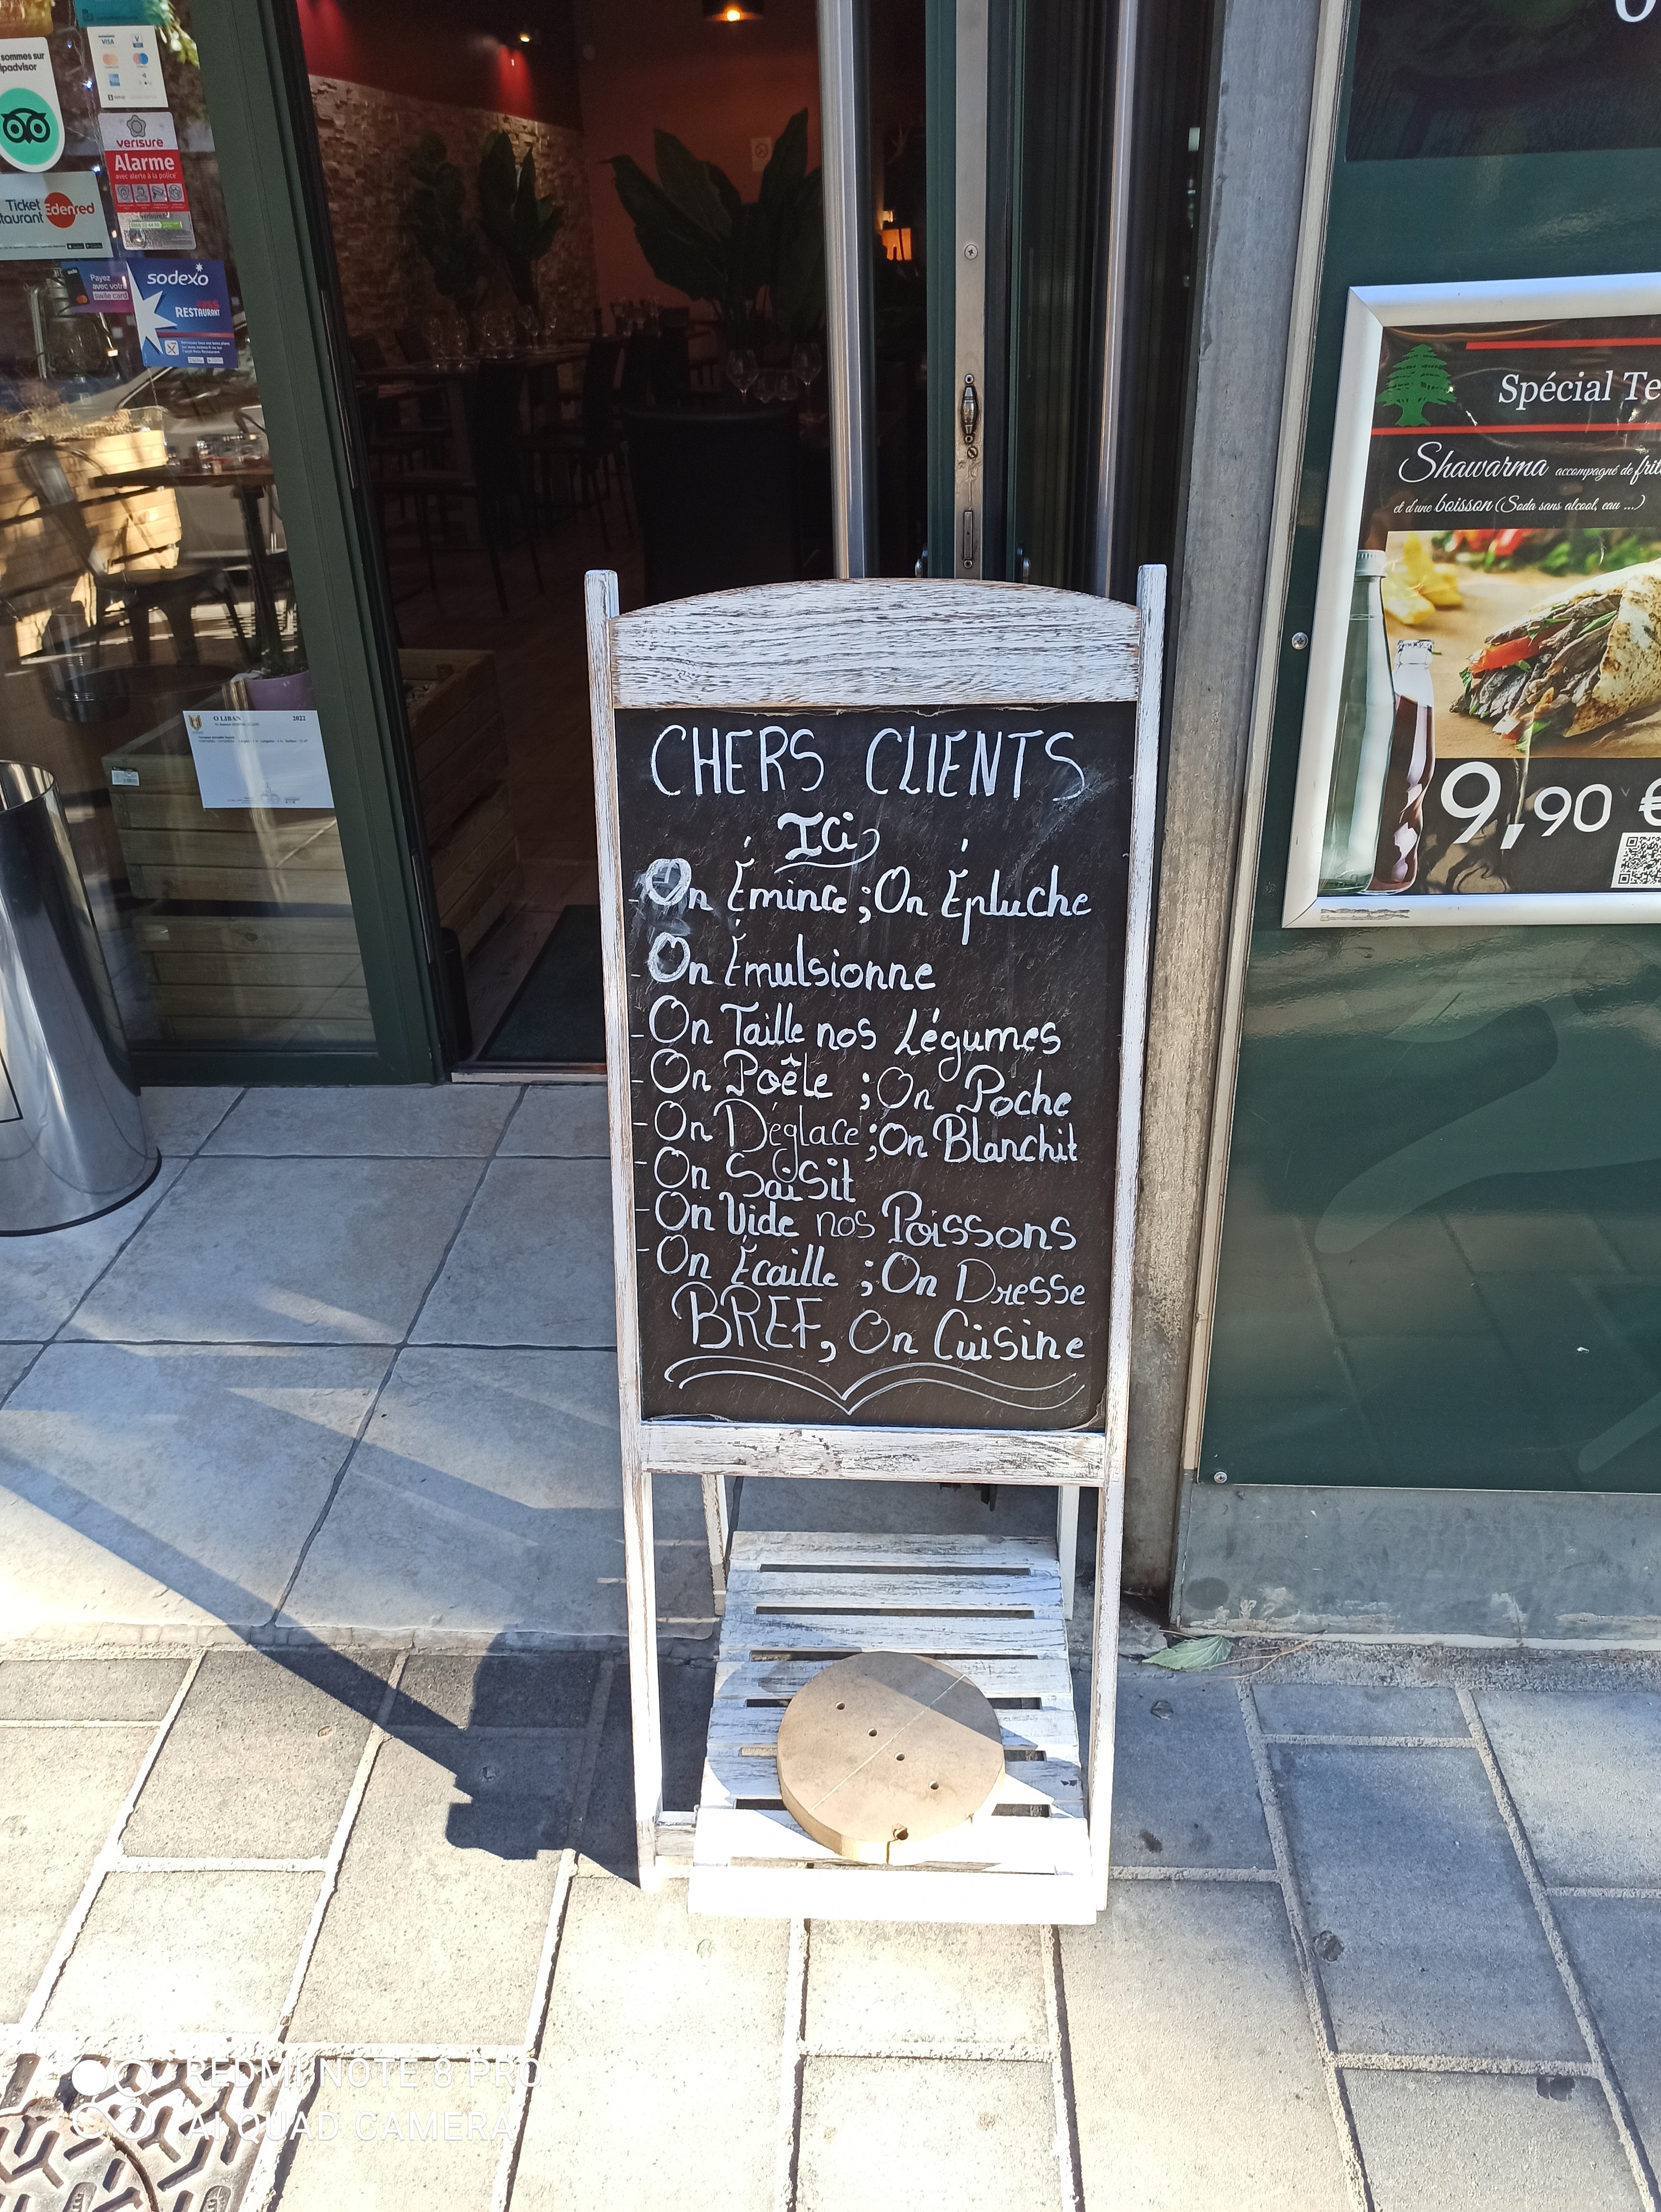 sommes sur
VISA
verisure
Alarme
avec alerte à la police
Ticket
Edenred
Payez
avec votre
swile card
sodexo
RESTAURANT
O LIBAN
2022
Spécial Te
Shawarma accompagné de frit
et d'une boisson (Soda sans alcool, eau ...)
9,90 €
CHERS CLIENTS
ICi
- On Émince ; On Épluche
- On Émulsionne
- On Taille nos Légumes
- On Poêle ; On Poche
- On Déglace ; On Blanchit
- On SaiSit
- On Vide nos Poissons
- On Écaille ; On Dresse
BREF, On Cuisine
REDMI NOTE 8 PRO
AI QUAD CAMERA